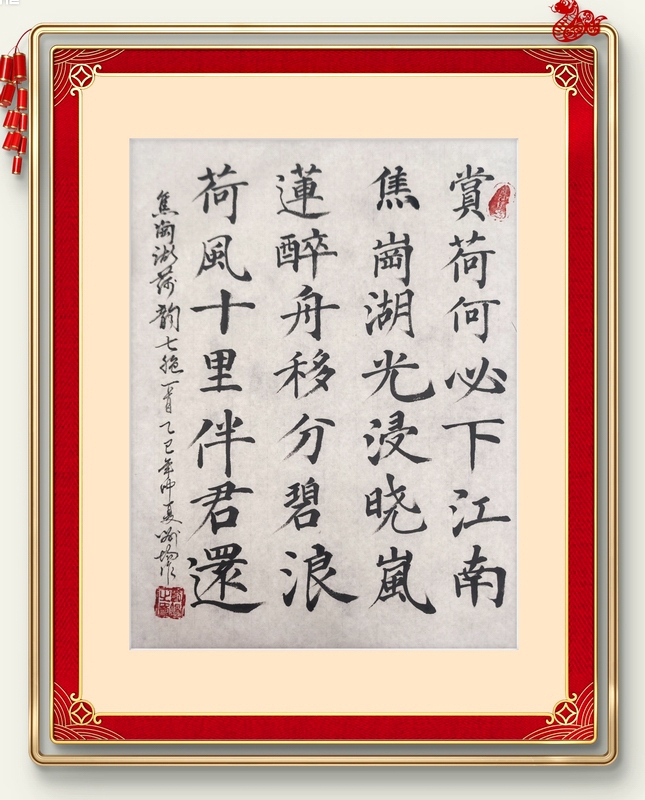 賞荷何必下江南
焦崗湖光浸晓嵐
蓮醉舟移分碧浪
荷風十里伴君還
焦崗湖荷韵七绝一首乙巳年仲夏